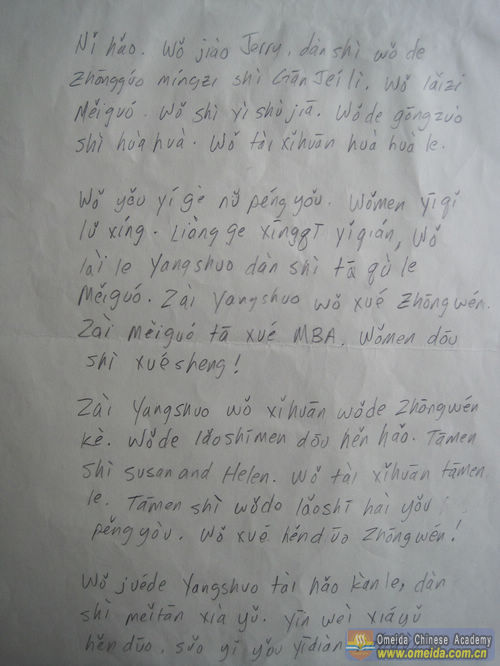 Nǐ hǎo. Wǒ jiào Jerry, dàn shì wǒ de
Zhōngguó míngzi shì Gān Jéi lì. Wǒ láizì
Měiguó. Wǒ shì yì shù jiā. Wǒde gōngzuò
shì huà huà. Wǒ tài xǐhuān huà huà le.
Wǒ yǒu yí gè nǚ péngyǒu. Wǒmen yīqǐ
lǚ xíng. Liǎng ge xīngqī yǐqián, Wǒ
lài le Yangshuo dàn shì tā qù le
Měiguó. Zài Yangshuo wǒ xué Zhōngwén.
Zài Mèiguó tā xué MBA. Wǒmen dōu
shì xuésheng!
Zài Yangshuo wǒ xǐhuān wǒde Zhōngwén
kè. Wǒde lǎoshīmen dōu hěn hǎo. Tāmen
shì Susan and Helen. Wǒ tài xǐhuān tāmen
le. Tāmen shì wǒdo lǎoshī hài yǒu
pěngyòu. Wǒ xué hěnduō Zhōngwén!
Wǒ juéde Yangshuo tài hǎo kàn le, dàn
shì měitān xià yǔ. Yīn wèi xiáyǔ
hěn duō, sǔo yǐ yǒu yìdiàn
Omeida Chinese Academy
www.omeida.com.cn